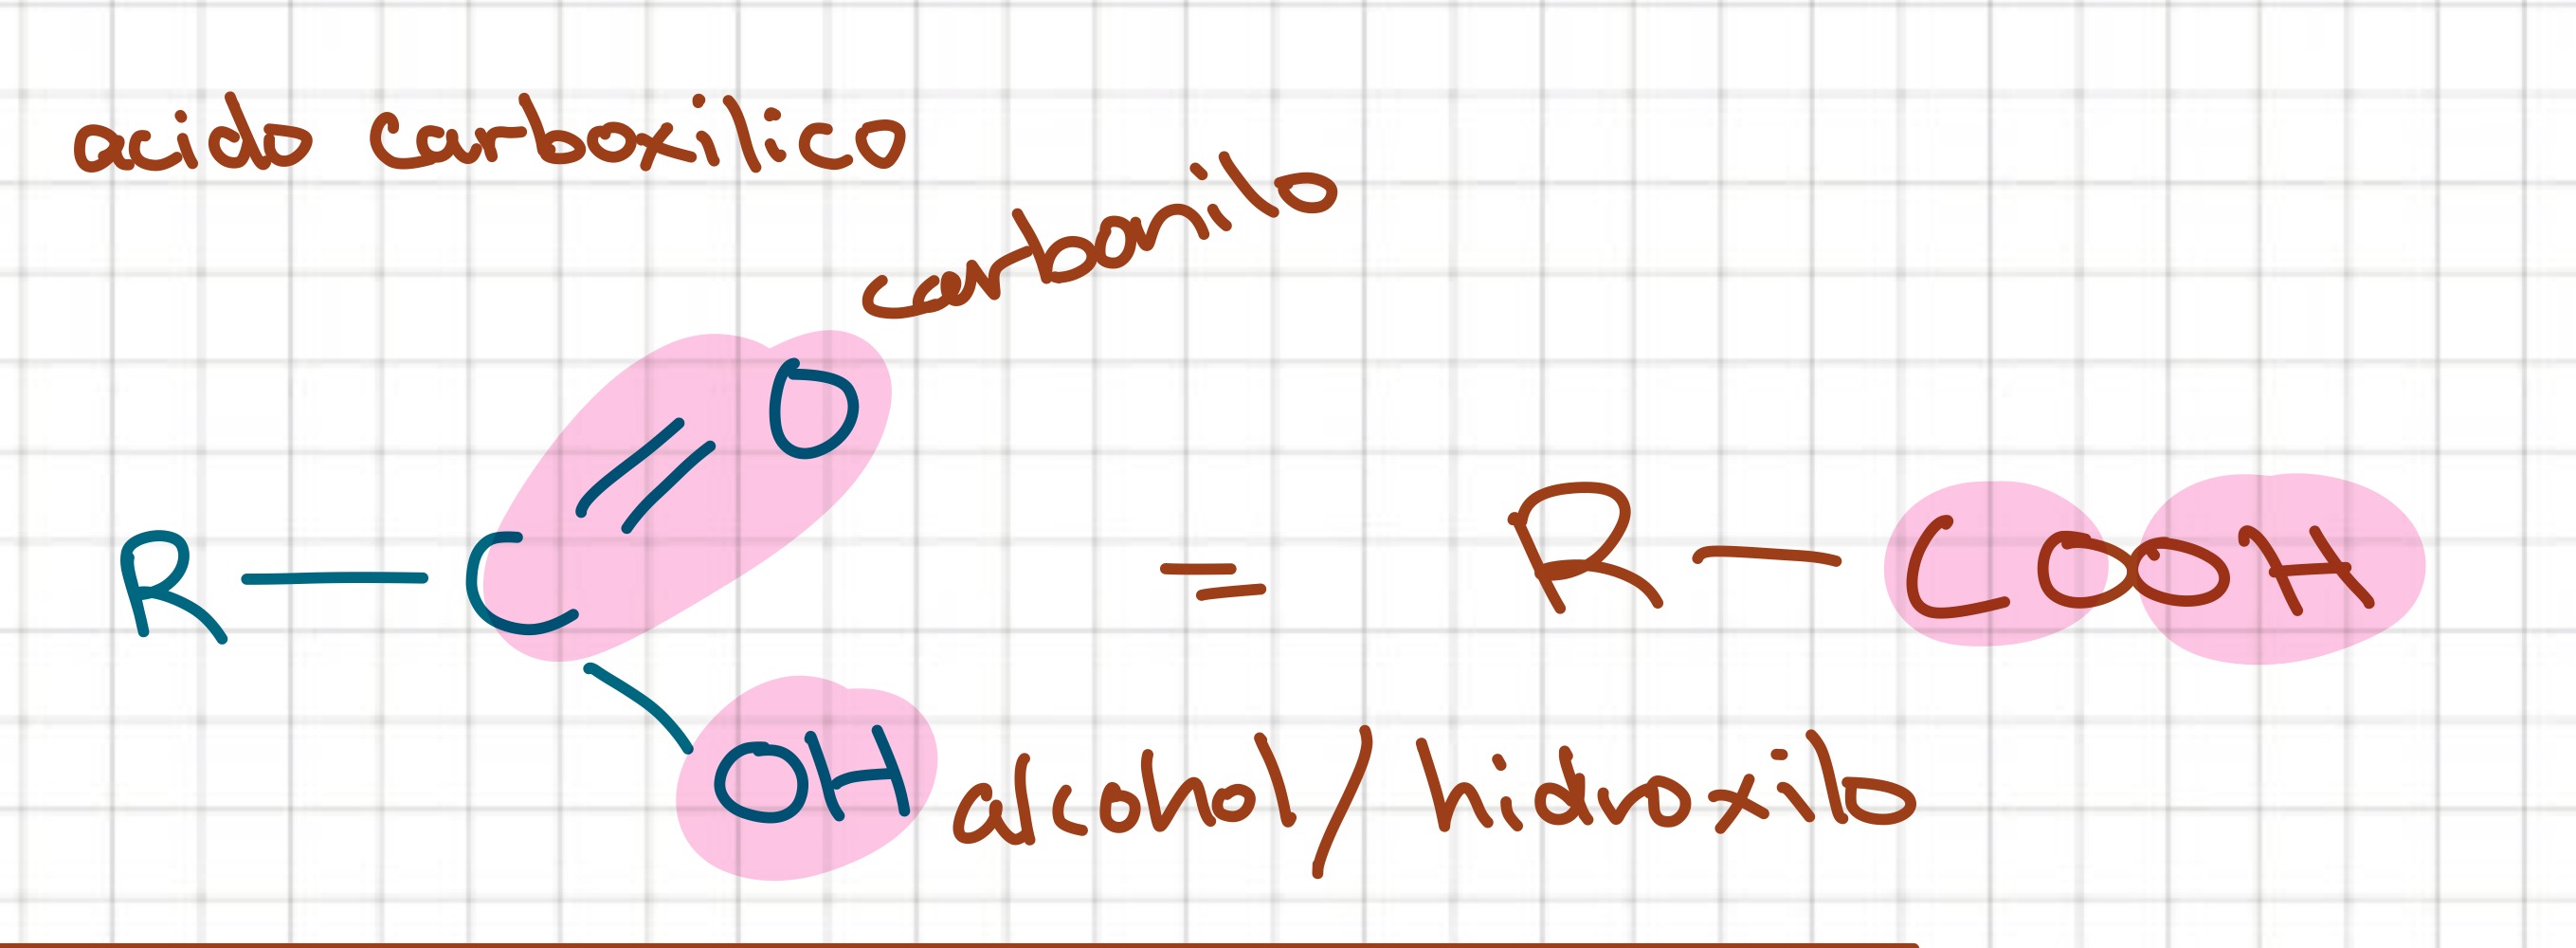 acido carboxilico
carbonilo
O
R — C = R — COOH
OH alcohol / hidroxilo